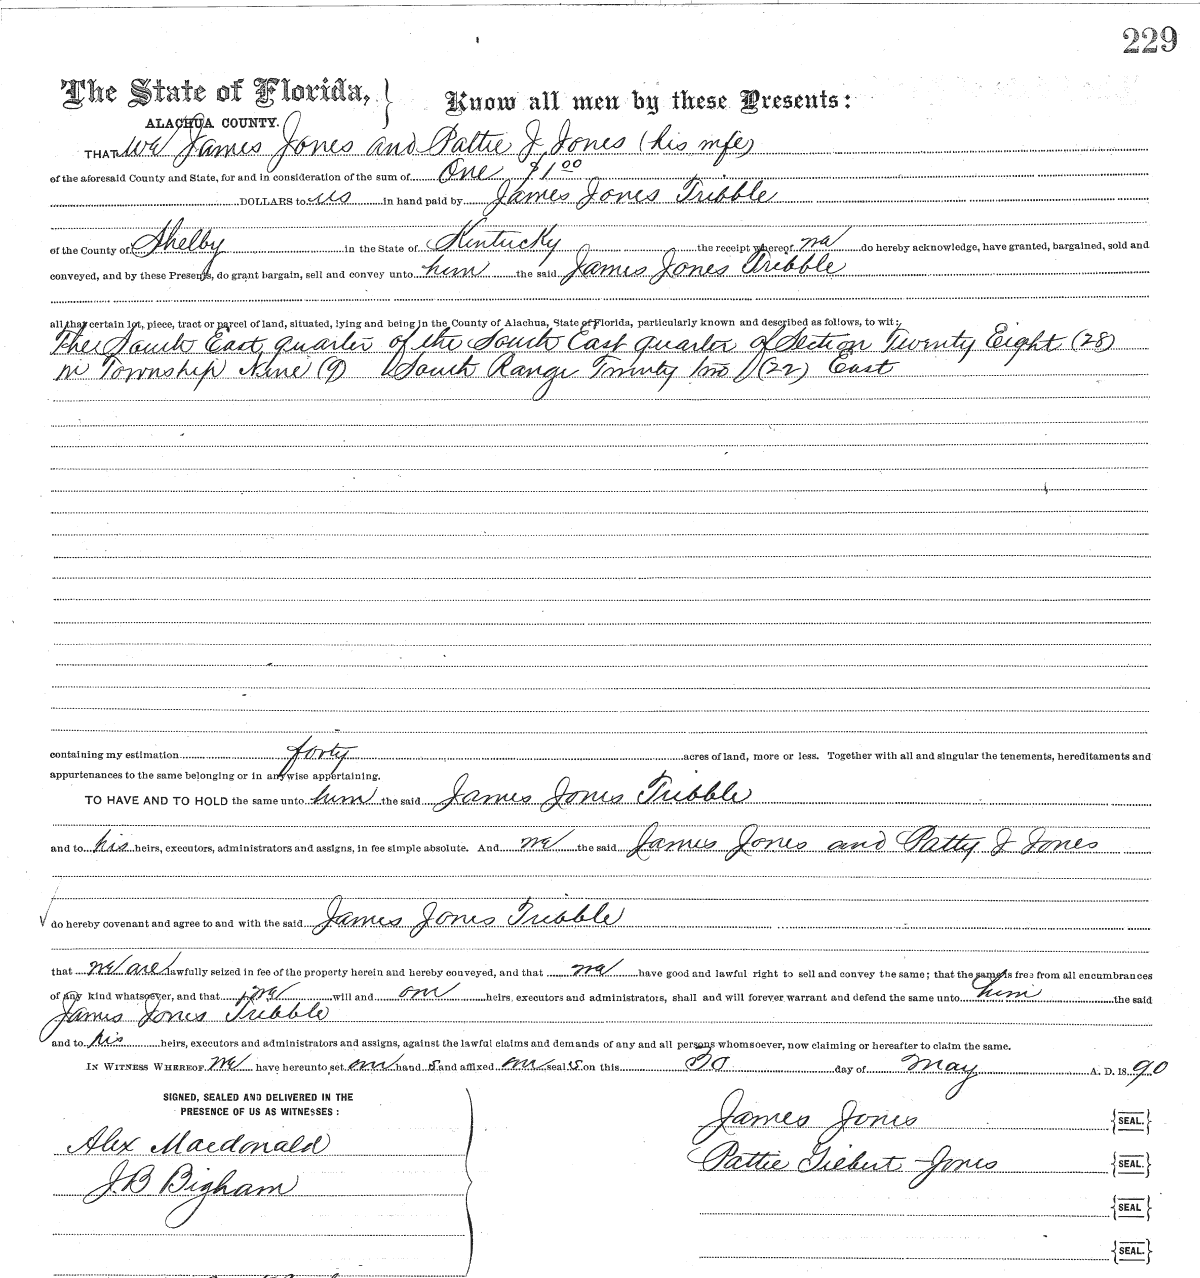 229
The State of Florida, } Know all men by these Presents:
ALACHUA COUNTY.
THAT we James Jones and Pattie J. Jones (his wife)
of the aforesaid County and State, for and in consideration of the sum of One $1 00
DOLLARS to us in hand paid by James Jones Tribble
of the County of Shelby in the State of Kentucky the receipt whereof we do hereby acknowledge, have granted, bargained, sold and
conveyed, and by these Presents, do grant bargain, sell and convey unto him the said James Jones Tribble
all that certain lot, piece, tract or parcel of land, situated, lying and being in the County of Alachua, State of Florida, particularly known and described as follows, to wit:
The South East quarter of the South East quarter of Section Twenty Eight (28)
in Township Nine (9) South Range Twenty Two (22) East
containing my estimation forty acres of land, more or less. Together with all and singular the tenements, hereditaments and
appurtenances to the same belonging or in anywise appertaining.
TO HAVE AND TO HOLD the same unto him the said James Jones Tribble
and to his heirs, executors, administrators and assigns, in fee simple absolute. And we the said James Jones and Patty J Jones
do hereby covenant and agree to and with the said James Jones Tribble
that we are lawfully seized in fee of the property herein and hereby conveyed, and that we have good and lawful right to sell and convey the same; that the same is free from all encumbrances
of any kind whatsoever, and that we will and our heirs, executors and administrators, shall and will forever warrant and defend the same unto him the said
James Jones Tribble
and to his heirs, executors and administrators and assigns, against the lawful claims and demands of any and all persons whomsoever, now claiming or hereafter to claim the same.
IN WITNESS WHEREOF we have hereunto set our hand s and affixed our seal s on this 30 day of May A. D. 18 90
SIGNED, SEALED AND DELIVERED IN THE
PRESENCE OF US AS WITNESSES:
James Jones {SEAL.}
Alex Macdonald
Pattie Gilbert Jones {SEAL.}
J.B Bigham
{SEAL}
{SEAL.}